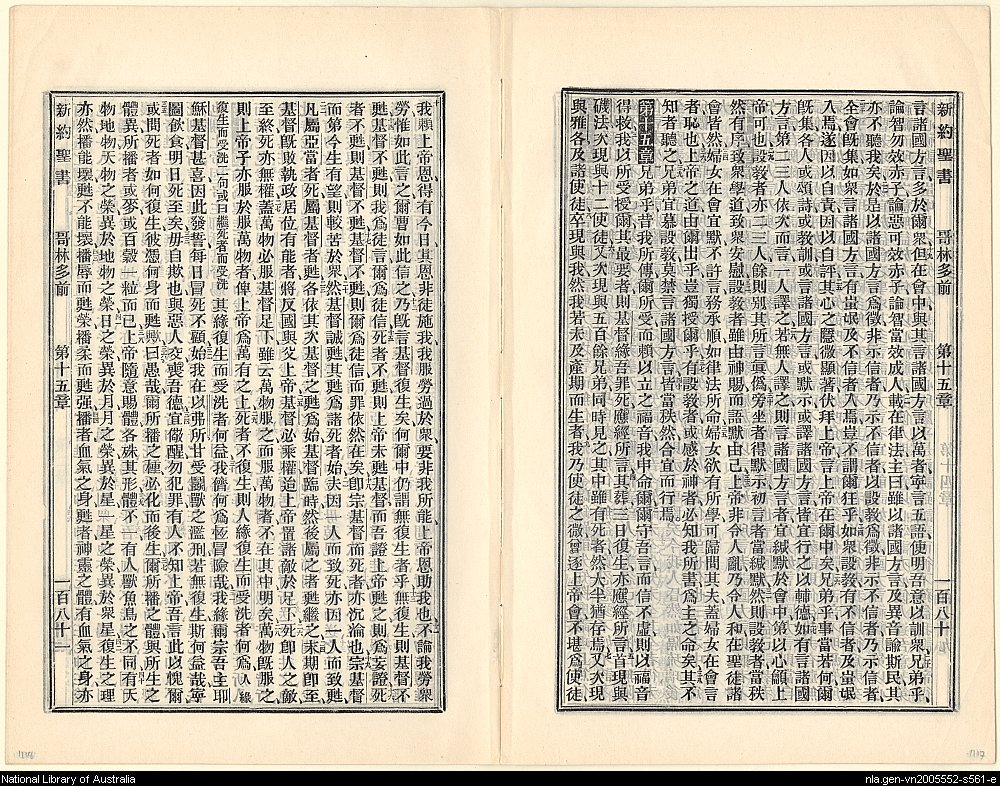 新約聖書 哥林多前 第十五章 一百八十
言諸國方言多於爾衆但在會中與其言諸國方言以萬者寧言五語使明吾意以訓衆兄弟乎
論智勿效赤子論惡可效赤子論智當效成人載在律法主曰雖以諸國方言及異音諭斯民其
亦不聽我矣於是以諸國方言爲徵非示信者乃示不信者以設教爲徵非示不信者乃示信者
全會旣集如衆言諸國方言有蚩氓及不信者入焉豈不謂爾狂乎如衆設教有不信者及蚩氓
入焉遂因以自責因以自評其心之隱微顯著伏拜上帝言上帝在爾中矣兄弟乎事當若何爾
旣集各人或頌詩或教訓或言諸國方言或默示或譯諸國方言皆宜行之以輔德如有言諸國
方言第二三人依次而言一人譯之若無人譯之則言諸國方言者宜緘默於會中第以心籲上
帝可也設教者亦二三人餘則別其所言眞僞旁坐者得默示初言者當緘默然則設教者當秩
然有序致衆學道致衆安慰設教者雖由神賜而語默由己上帝非令人亂乃令人和在聖徒諸
會皆然婦女在會宜默不許言務承順如律法所命婦女欲有所學可歸問其夫蓋婦女在會言
者恥也上帝之道由爾出乎豈獨授爾乎有設教者或感於神者必知我所書爲主之命矣其不
知者聽之兄弟宜慕設教莫禁言諸國方言皆當秩然合宜而行焉
第十五章兄弟乎昔我所傳爾所受而賴以立之福音我申命爾爾守吾言而信不虛則以福音
得救我以所受授爾其最要者則基督緣吾罪死應經所言其葬三日復生亦應經所言首現與
磯法次現與十二使徒又次現與五百餘兄弟同時見之其中雖有死者然大半猶存焉又次現
與雅各及諸使徒卒現與我然我若未及產期而生者我乃使徒之微曾逐上帝會不堪爲使徒
我賴上帝恩得有今日其恩非徒施我我服勞過於衆要非我所能上帝恩助我也不論我勞衆
勞惟如此言之爾曹如此信之乃旣言基督復生矣何爾中仍謂無復生者乎無復生則基督不
甦基督不甦則我爲徒言爾爲徒信死者不甦則上帝未甦基督而吾證上帝甦之則爲妄證死
者不甦則基督不甦基督不甦則爾爲徒信而罪依然在矣卽宗基督而死者亦沉淪也宗基督
而第今生有望則較苦於衆然基督誠甦其甦爲諸死者始夫因一人而致死亦因一人而致甦
凡屬亞當者死屬基督者甦各依其次基督之甦爲始基督臨時然後屬之者甦繼之末期卽至
基督旣敗執政居位有能者將反國與父上帝基督必秉權迨上帝置諸敵於足下死卽人之敵
至終死亦無權蓋萬物必服基督足下雖云萬物服之而服萬物者不在其中明矣萬物旣服之
則上帝子亦服於服萬物者俾上帝爲萬有之上死者不復生則人緣復生而受洗者何爲人緣
復生而受洗一句或曰繼死者而受洗其緣復生而受洗者何益我儕何爲恆冒險哉我緣爾宗吾主耶
穌基督甚喜因此發誓每日冒死不顧始我在以弗所甘受鬭獸之濫刑若無復生斯何益哉寧
圖飲食明日死至矣毋自欺也與惡人交喪吾德宜儆醒勿犯罪有人不知上帝吾言此以愧爾
或問死者如何復生彼憑何身而甦曰愚哉爾所播之種必化而後生爾所播之體與所生之
體異所播者或麥或百穀一粒而已上帝隨意賜體各殊其形體不一有人獸魚鳥之不同有天
物地物天物之榮異於地物之榮日之榮異於月月之榮異於星一星之榮異於衆星復生之理
亦然播能壞甦不能壞播辱而甦榮播柔而甦强播者血氣之身甦者神靈之體有血氣之身亦
新約聖書 哥林多前 第十五章 一百八十一
National Library of Australia
nla.gen-vn2005552-s561-e